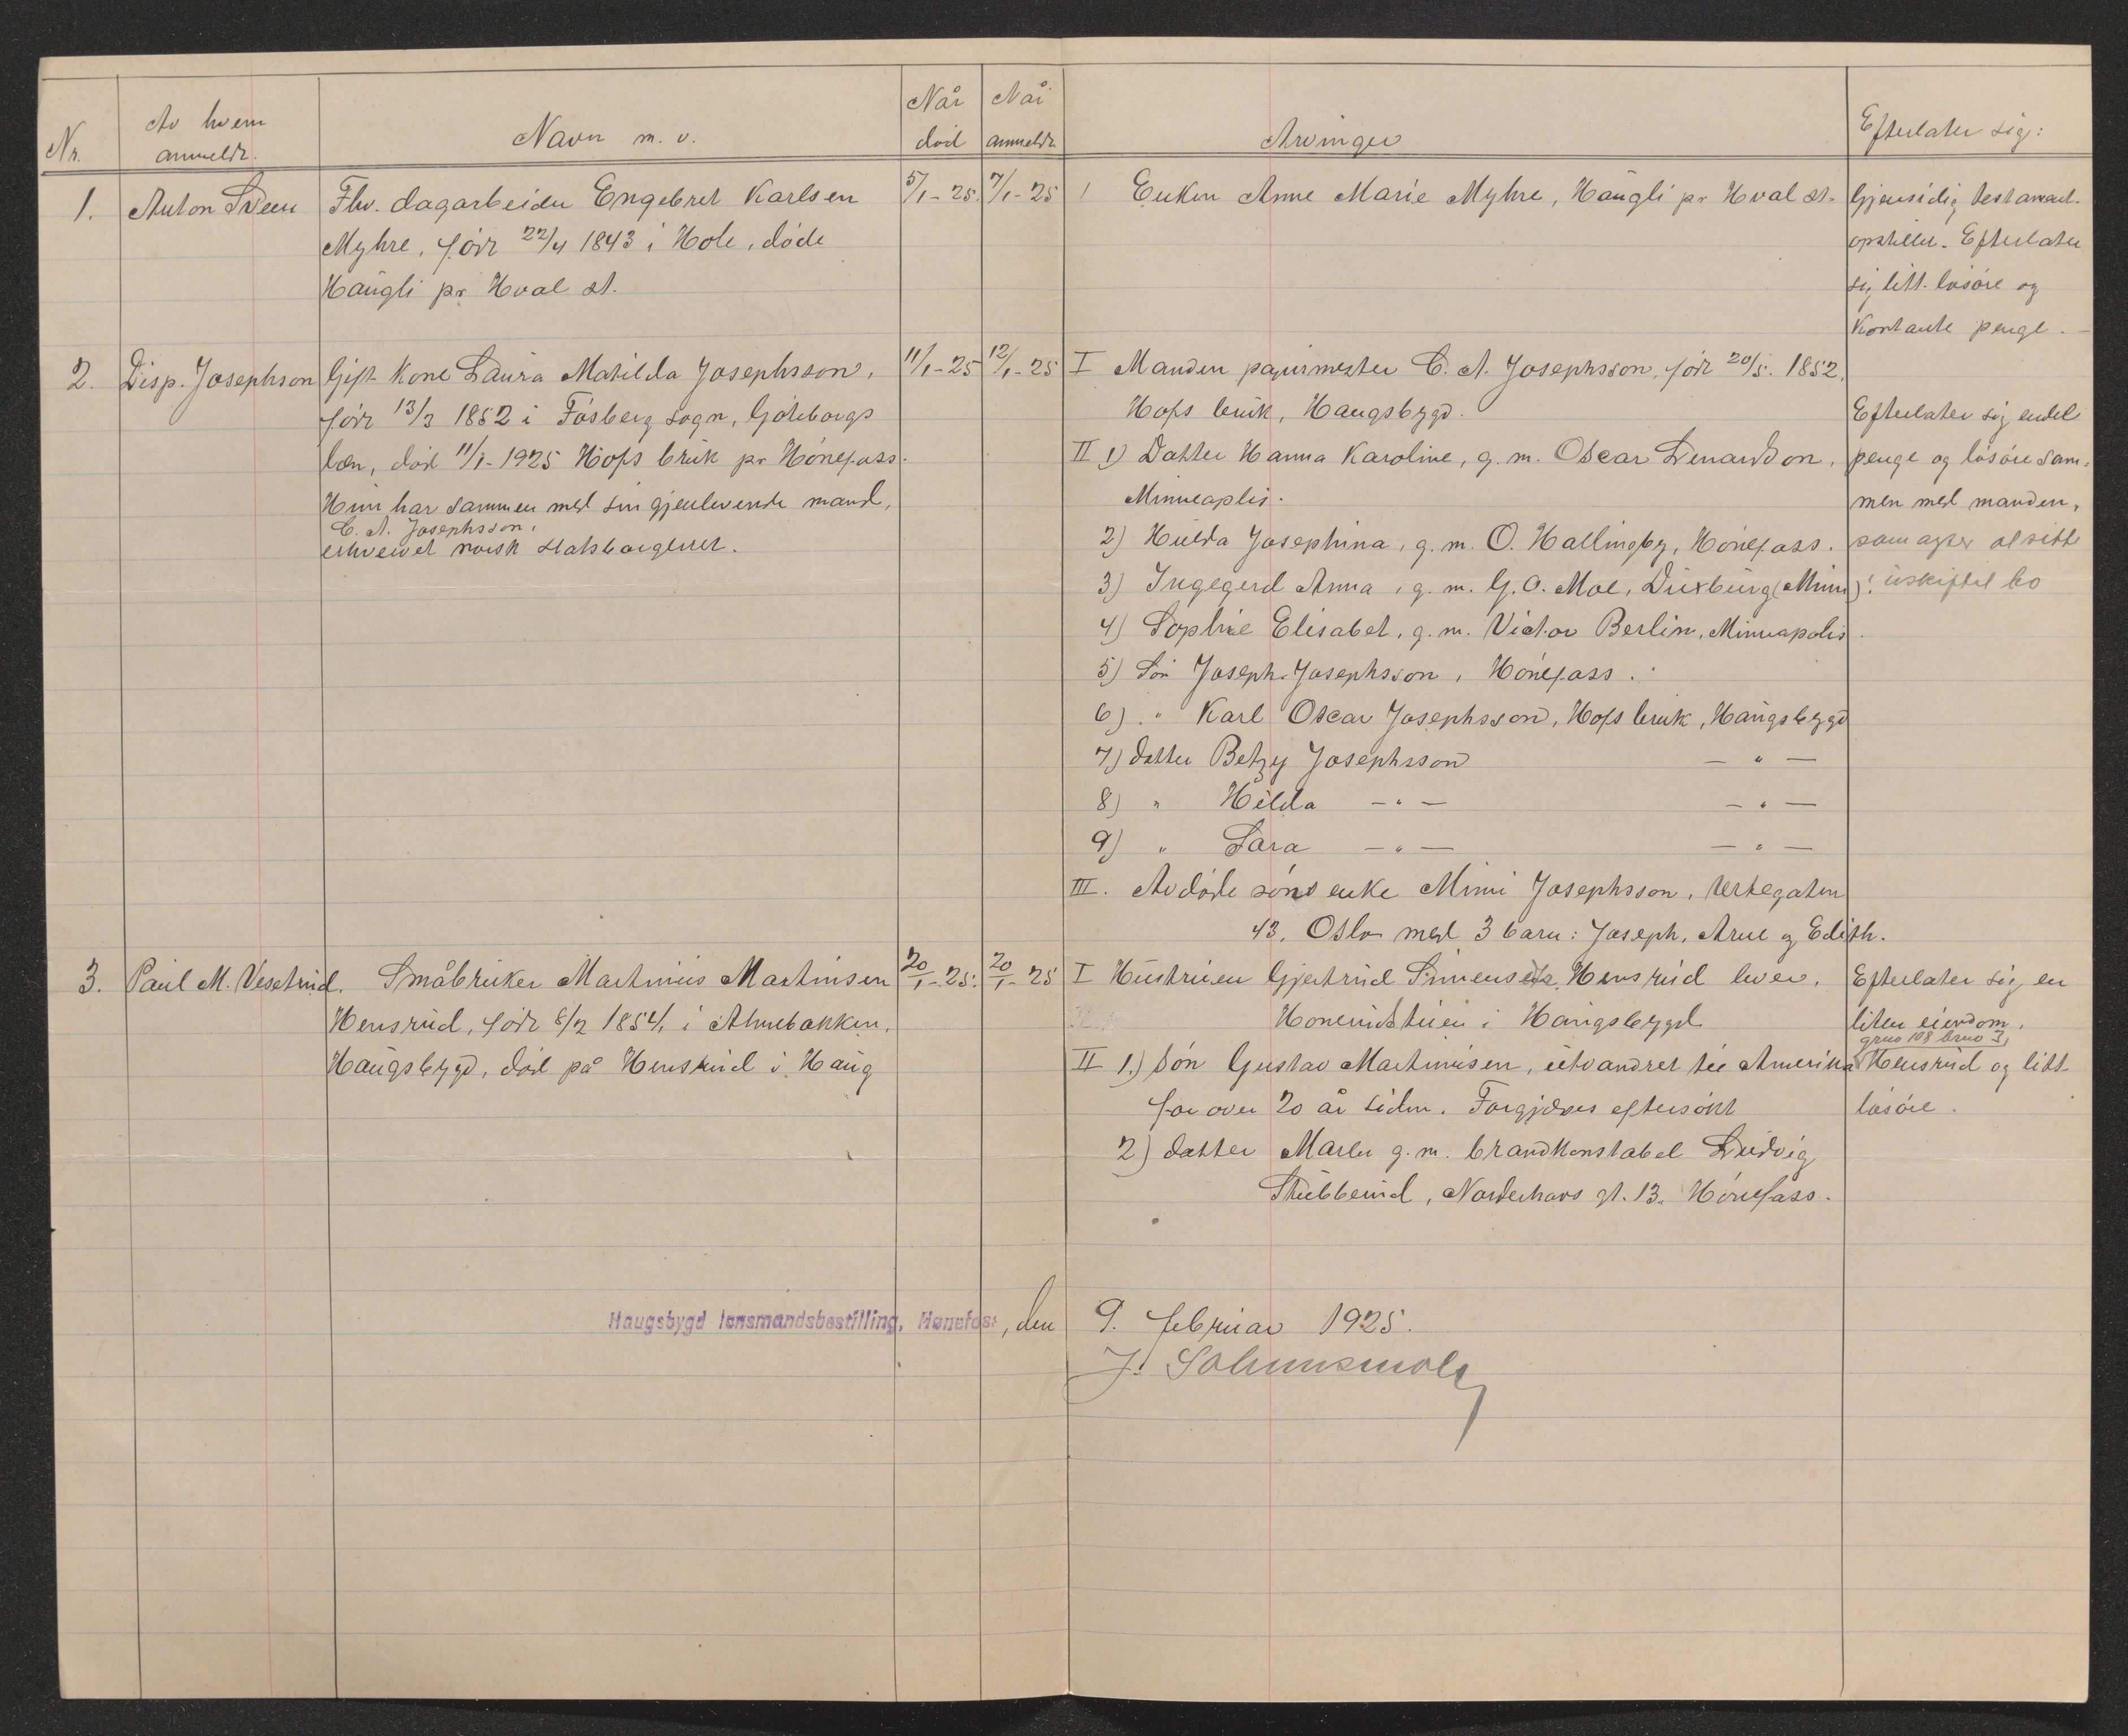 Nr.
Av hvem anmeldt.
Navn m. v.
Når død
Når anmeldt
Arvinger
Efterlater sig:
1.
Anton Sveen
Fhv. dagarbeider Engebret Karlsen
Myhre, født 22/4 1843 i Hole, døde
Haugli pr Hval st.
5/1-25.
7/1-25
1 Enken Anne Marie Myhre, Haugli pr Hval st.
Gjensidig testament
opstillet. Efterlater
sig litt løsøre og
kontante penge.
2.
Disp. Josephson
Gift kone Laura Matilda Josephsson,
født 13/3 1852 i Fosberg sogn, Göteborgs
len, død 11/1-1925 Hofs bruk pr Hönefoss.
Hun har sammen med sin gjenlevende mand,
C. A. Josephsson,
erhvervet norsk statsborgerret.
11/1-25
12/1-25
I Manden papirmester C. A. Josephsson, født 20/5. 1852,
Hofs bruk, Haugsbygd.
II 1) Datter Hanna Karoline, g. m. Oscar Lenardson,
Minneaplis.
2) Hulda Josephina, g. m. O. Hallingby, Hönefoss.
3) Ingegerd Anna, g. m. G. O. Moe, Duxburg (Minn).
4) Sophie Elisabet, g. m. Victor Berlin, Minneapolis.
5) Søn Joseph Josephsson, Hönefoss.
6) " Karl Oscar Josephsson, Hofs bruk, Haugsbygd
7) datter Betzy Josephsson — " —
8) " Hilda — " — — " —
9) " Sara — " — — " —
III. Avdøde søns enke Mimi Josephsson, Verksgaten
43, Oslo med 3 barn: Joseph, Arne og Edith.
Efterlater sig endel
penge og løsøre sam-
men med manden,
som agter at sitte
i uskiftet bo
3.
Paul M. Vesetrud.
Småbruker Martinius Martinsen
Hensrud, født 8/2 1854, i Almebakken,
Haugsbygd, død på Hensrud i Haug
20/1-25.
20/1-25
I Hustruen Gjertrud Simensdtr. Hensrud lever,
i Haugsbygd
II 1.) Søn Gustav Martinusen, utvandret til Amerika
for over 20 år siden. Forgjæves eftersøkt
2) datter Maren g. m. brandkonstabel Ludvig
Stubberud, Norderhovs gt. 13. Hönefoss.
Efterlater sig en
liten eiendom,
grno 108 brno 3,
Hensrud og litt
løsøre.
Haugsbygd lensmandsbestilling, Hønefoss, den 9. februar 1925.